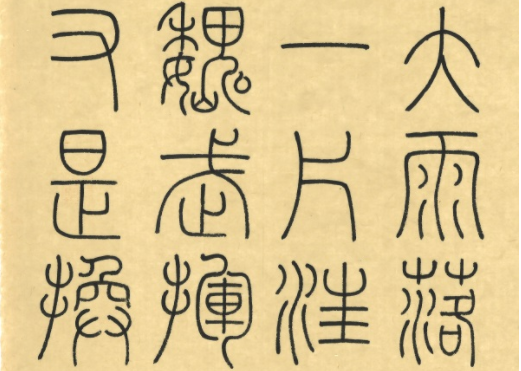 大雨落
一片汪
魏武揮
又是換